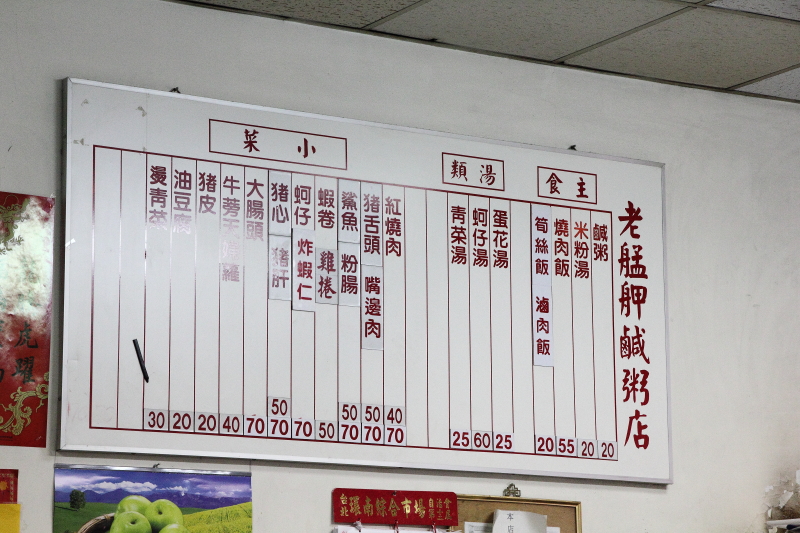 老艋舺鹹粥店
主食
鹹粥 20
米粉湯 20
燒肉飯 55
筍絲飯 滷肉飯 20
湯類
蛋花湯 25
蚵仔湯 60
青菜湯 25
小菜
紅燒肉 40 70
豬舌頭 嘴邊肉 50 70
鯊魚 粉腸 50 70
蝦卷 雞捲 50
蚵仔 炸蝦仁 70
豬心 豬肝 50 70
大腸頭 70
牛蒡天婦羅 40
豬皮 20
油豆腐 20
燙青菜 30
虎躍
台北 環南綜合市場 自治會
本店